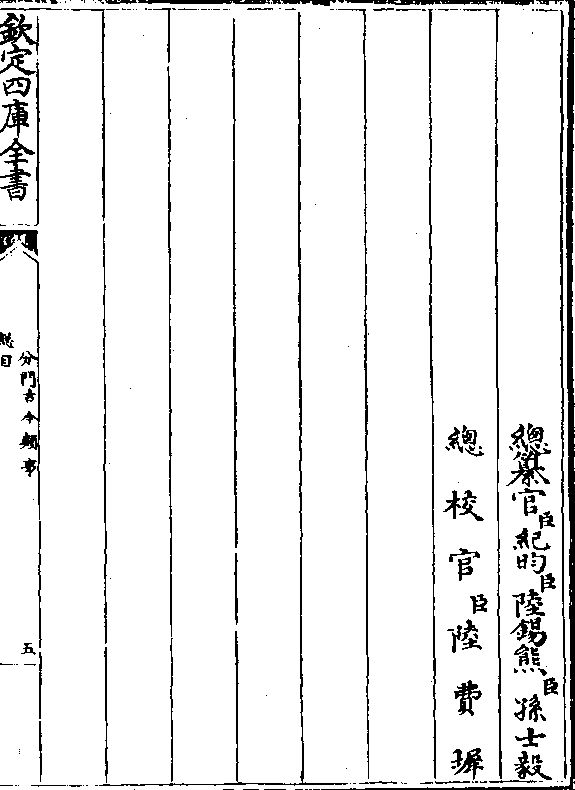 總纂官臣紀昀臣陸錫熊臣孫士毅
總校官臣陸費墀
欽定四庫全書
分門古今類事
總目
五